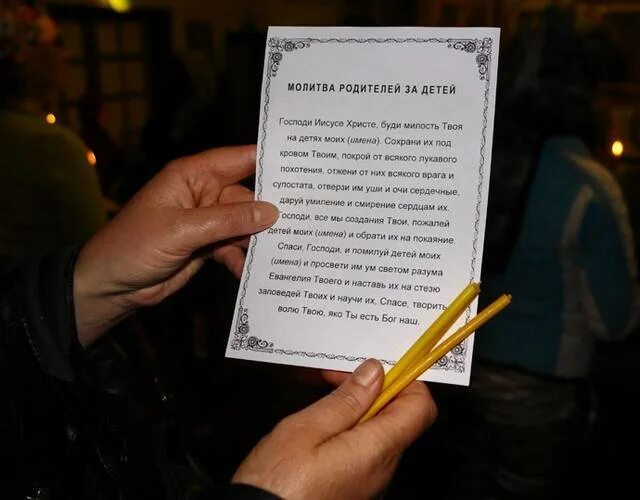 МОЛИТВА РОДИТЕЛЕЙ ЗА ДЕТЕЙ
Господи Иисусе Христе, буди милость Твоя
на детях моих (имена). Сохрани их под
кровом Твоим, покрой от всякого лукавого
похотения, отжени от них всякого врага и
супостата, отверзи им уши и очи сердечные,
даруй умиление и смирение сердцам их.
Господи, все мы создания Твои, пожалей
детей моих (имена) и обрати их на покаяние.
Спаси, Господи, и помилуй детей моих
(имена) и просвети им ум светом разума
Евангелия Твоего и наставь их на стезю
заповедей Твоих и научи их, Спасе, творить
волю Твою, яко Ты есть Бог наш.